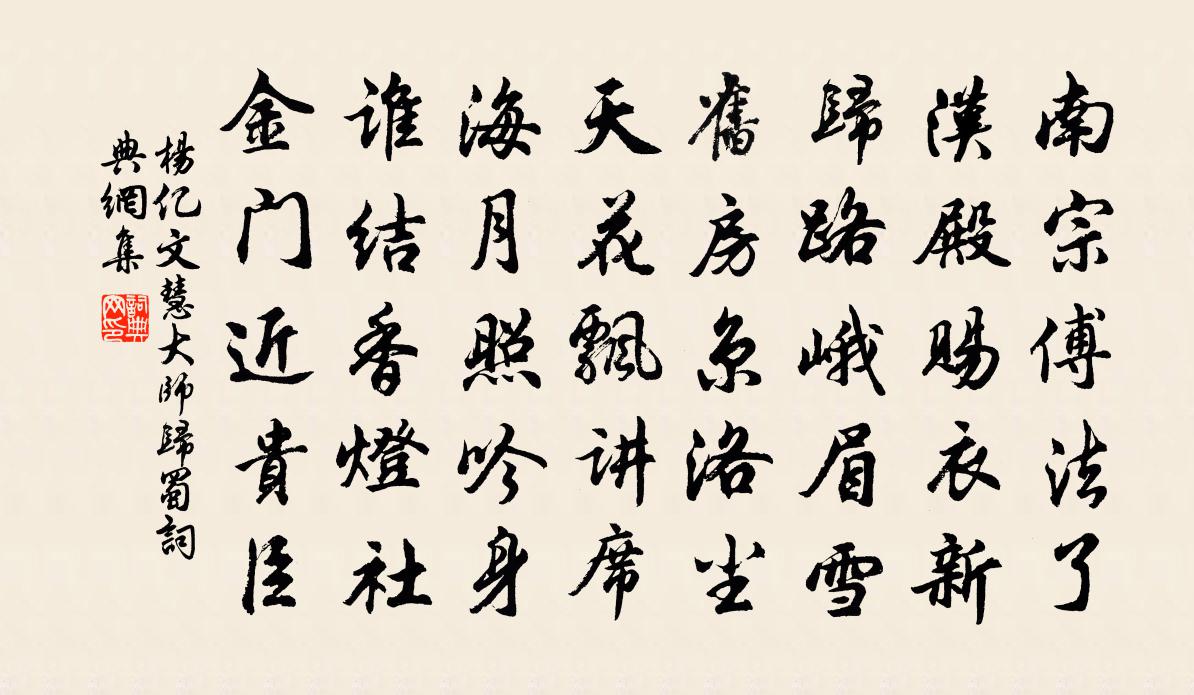 南宗傅法了
漢殿賜衣新
歸路峨眉雪
舊房京洛尘
天花飄讲席
海月照吟身
谁结香燈社
金门近貴臣
楊亿文慧大师歸蜀詞
典網集
詞典
网印